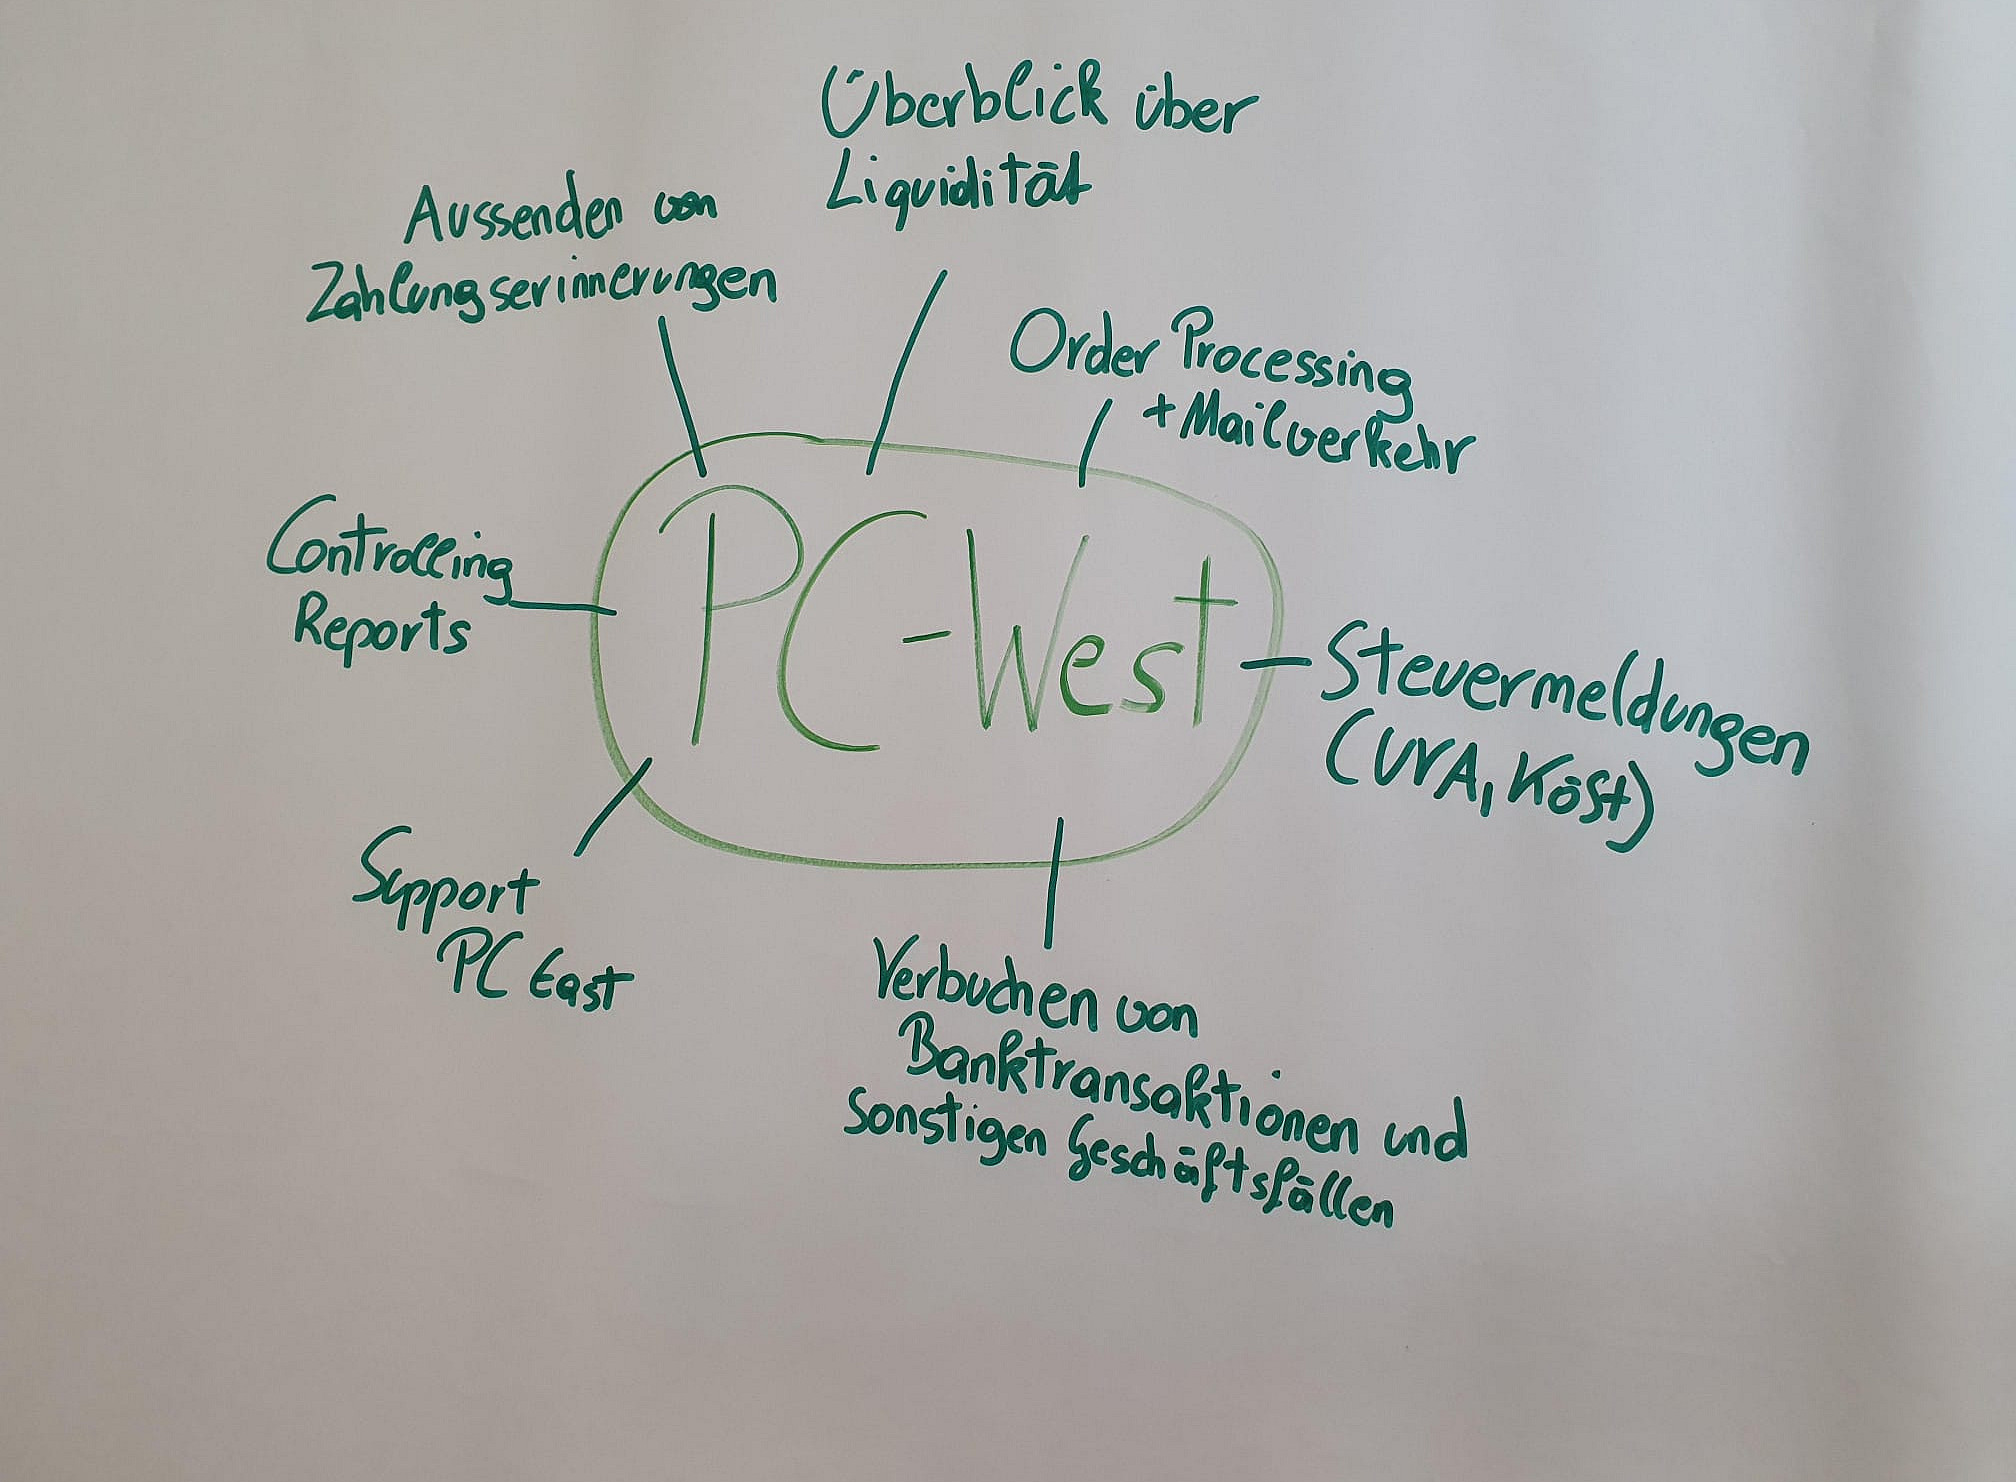 Überblick über
Liquidität
Aussenden von
Zahlungserinnerungen
Order Processing
+ Mailverkehr
Controlling
Reports
PC-West
Steuermeldungen
(UVA, Köst)
Support
PC East
Verbuchen von
Banktransaktionen und
sonstigen Geschäftsfällen